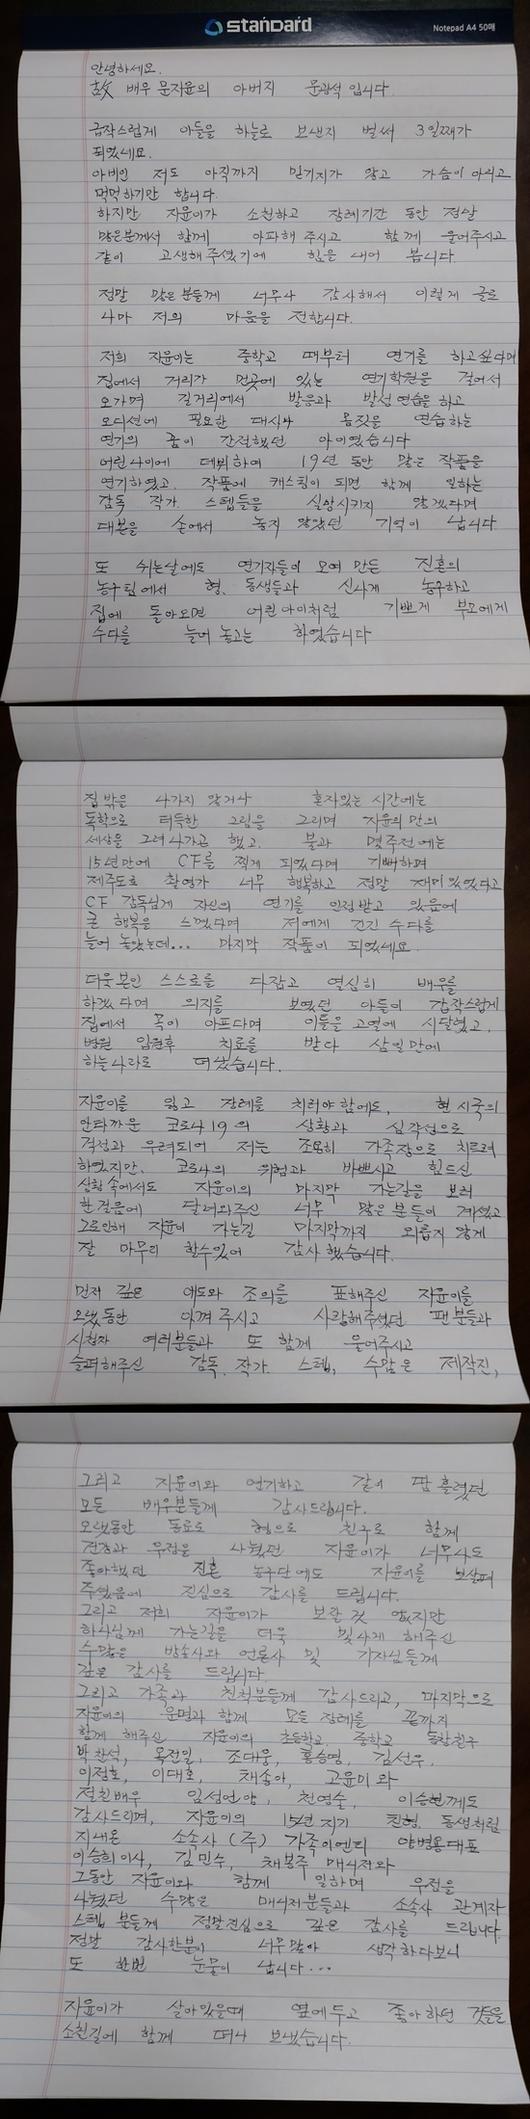 standard
Notepad A4 50매
안녕하세요.
故 배우 문지윤의 아버지 문광석 입니다.
급작스럽게 아들을 하늘로 보낸지 벌써 3일째가
되었네요.
아비인 저도 아직까지 믿기지가 않고 가슴이 아리고
먹먹하기만 합니다.
하지만 지윤이가 소천하고 장례기간 동안 정말
많은분께서 함께 아파해 주시고 함께 울어주시고
같이 고생해 주셨기에 힘을 내어 봅니다
정말 많은 분들께 너무나 감사해서 이렇게 글로
나마 저의 마음을 전합니다.
저희 지윤이는 중학교 때부터 연기를 하고싶다며
집에서 거리가 먼곳에 있는 연기학원을 걸어서
오가며 길거리에서 발음과 발성 연습을 하고
오디션에 필요한 대사나 몸짓을 연습하는
연기의 꿈이 간절했던 아이였습니다
어린나이에 데뷔하여 19년 동안 많은 작품을
연기하였고. 작품에 캐스팅이 되면 함께 일하는
감독 작가. 스텝들을 실망시키지 않겠다며
대본을 손에서 놓지 않았던 기억이 납니다
또 쉬는날에도 연기자들이 모여 만든 진혼의
농구팀에서 형. 동생들과 신나게 농구하고
집에 돌아오면 어린아이처럼 기쁘게 부모에게
수다를 늘어 놓고는 하였습니다
집 밖을 나가지 않거나 혼자있는 시간에는
독학으로 터득한 그림을 그리며 지윤의 만의
세상을 그려나가곤 했고. 불과 몇주전에는
15년만에 CF를 찍게 되었다며 기뻐하며
제주도로 촬영가 너무 행복하고 정말 재미있었다고
CF 감독님께 자신의 연기를 인정받고 있음에
큰 행복을 느꼈다며 저에게 긴긴 수다를
늘어 놓았는데... 마지막 작품이 되었네요
더욱 본인 스스로를 다잡고 열심히 배우를
하겠다며 의지를 보였던 아들이 갑작스럽게
집에서 목이 아프다며 이틀을 고열에 시달렸고.
병원 입원후 치료를 받다 삼일만에
하늘나라로 떠났습니다.
지윤이를 잃고 장례를 치러야 함에도, 현 시국의
안타까운 코로나19의 상황과 심각성으로
걱정과 우려되어 저는 조용히 가족장으로 치르려
하였지만. 코로나의 위험과 바쁘시고 힘드신
상황 속에서도 지윤이의 마지막 가는길을 보러
한걸음에 달려와주신 너무 많은 분들이 계셨고
그로인해 지윤이 가는길 마지막까지 외롭지 않게
잘 마무리 할수있어 감사했습니다.
먼저 깊은 애도와 조의를 표해주신 지윤이를
오랫동안 아껴 주시고 사랑해주셨던 팬분들과
시청자 여러분들과 또 함께 울어주시고
슬퍼해주신 감독. 작가. 스텝, 수많은 제작진,
그리고 지윤이와 연기하고 같이 땀 흘렸던
모든 배우분들께 감사드립니다.
오랫동안 동료로 형으로 친구로 함께
건강과 우정을 나눴던 지윤이가 너무나도
좋아했던 진혼 농구단에도 지윤이를 보살펴
주셨음에 진심으로 감사를 드립니다.
그리고 저희 지윤이가 보잘 것 없지만
하나님께 가는길을 더욱 빛나게 해주신
수많은 방송사와 언론사 및 기자님들께
깊은 감사를 드립니다
그리고 가족과 친척분들께 감사드리고, 마지막으로
지윤이의 운명과 함께 모든 장례를 끝까지
함께 해주신 지윤이의 초등학교. 중학교 동창친구
박찬석, 옥진일, 조대웅, 홍승영, 김선우,
이정호, 이대호, 채송아, 고윤미 와
절친배우 임성언양, 천영술, 이승현께도
감사드리며, 지윤이의 15년 지기 친형. 동생처럼
지내온 소속사 (주) 가족이엔티 양병용대표
이승희이사, 김민수, 채봉주 매니저와
그동안 지윤이와 함께 일하며 우정을
나눴던 수많은 매니저분들과 소속사 관계자
스텝 분들께 정말진심으로 깊은 감사를 드립니다.
정말 감사한분이 너무 많아 생각하다보니
또 한번 눈물이 납니다...
지윤이가 살아있을때 옆에두고 좋아하던 것들을
소천길에 함께 떠나 보냈습니다.